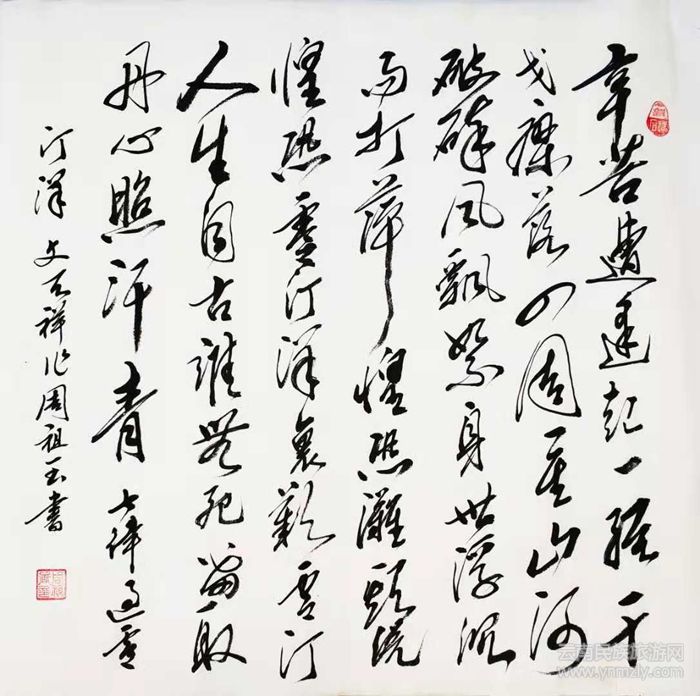 辛苦遭逢起一經干
戈寥落四周星山河
破碎風飄絮身世浮沉
雨打萍惶恐灘頭說
惶恐零汀洋裏歎零汀
人生自古誰無死留取
丹心照汗青 七律過零
汀洋 文天祥作周祖玉書
云南民族旅游网
www.ynmzly.com